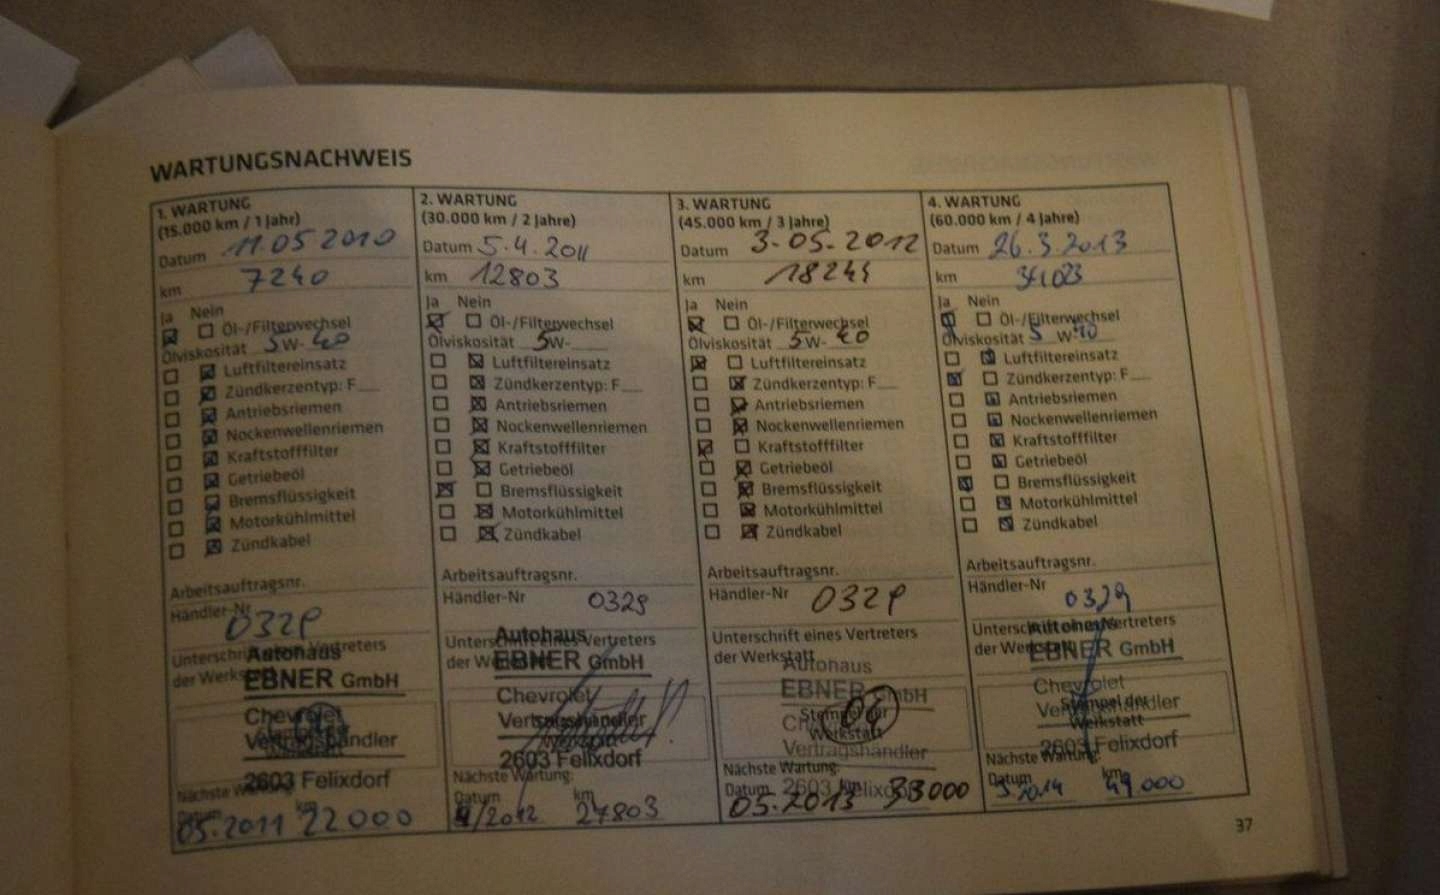 WARTUNGSNACHWEIS
1. WARTUNG
(15.000 km / 1 Jahr)
Datum 11.05 2010
km 7240
Ja Nein
Öl-/Filterwechsel
Ölviskosität 5 W- 40
Luftfiltereinsatz
Zündkerzentyp: F
Antriebsriemen
Nockenwellenriemen
Kraftstofffilter
Getriebeöl
Bremsflüssigkeit
Motorkühlmittel
Zündkabel
Arbeitsauftragsnr.
Händler-Nr
0329
Unterschrift eines Vertreters
der Werkstatt
Autohaus
EBNER GmbH
Chevrolet
Vertragshändler
2603 Felixdorf
Nächste Wartung:
Datum km
05.2011 22000
2. WARTUNG
(30.000 km / 2 Jahre)
Datum 5.4.2011
km 12803
Ja Nein
Öl-/Filterwechsel
Ölviskosität 5W-
Luftfiltereinsatz
Zündkerzentyp: F
Antriebsriemen
Nockenwellenriemen
Kraftstofffilter
Getriebeöl
Bremsflüssigkeit
Motorkühlmittel
Zündkabel
Arbeitsauftragsnr.
Händler-Nr 0329
Unterschrift eines Vertreters
der Werkstatt
Autohaus
EBNER GmbH
Chevrolet
Vertragshändler
2603 Felixdorf
Nächste Wartung:
Datum km
4/2012 27803
3. WARTUNG
(45.000 km / 3 Jahre)
Datum 3-05-2012
km 18244
Ja Nein
Öl-/Filterwechsel
Ölviskosität 5 W- 40
Luftfiltereinsatz
Zündkerzentyp: F
Antriebsriemen
Nockenwellenriemen
Kraftstofffilter
Getriebeöl
Bremsflüssigkeit
Motorkühlmittel
Zündkabel
Arbeitsauftragsnr.
Händler-Nr 0329
Unterschrift eines Vertreters
der Werkstatt
Autohaus
EBNER GmbH
Stempel der
Werkstatt
Chevrolet
Vertragshändler
2603 Felixdorf
Nächste Wartung:
Datum
05.2013 33000
4. WARTUNG
(60.000 km / 4 Jahre)
Datum 26.3.2013
km
Ja Nein
Öl-/Filterwechsel
Ölviskosität 5 W- 40
Luftfiltereinsatz
Zündkerzentyp: F
Antriebsriemen
Nockenwellenriemen
Kraftstofffilter
Getriebeöl
Bremsflüssigkeit
Motorkühlmittel
Zündkabel
Arbeitsauftragsnr.
Händler-Nr
0329
Unterschrift eines Vertreters
der Werkstatt
Autohaus
EBNER GmbH
Chevrolet
Stempel der
Vertragshändler
Werkstatt
2603 Felixdorf
Nächste Wartung:
Datum km
3 2014 49000
37